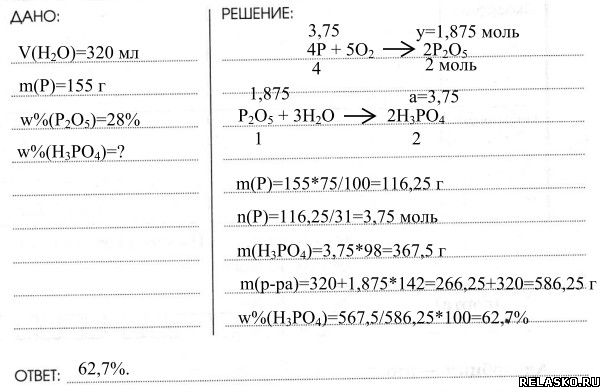 ДАНО:
V(H₂O)=320 мл
m(P)=155 г
w%(P₂O₅)=28%
w%(H₃PO₄)=?
РЕШЕНИЕ:
3,75 y=1,875 моль
4P + 5O₂ → 2P₂O₅
4 2 моль
1,875 a=3,75
P₂O₅ + 3H₂O → 2H₃PO₄
1 2
m(P)=155*75/100=116,25 г
n(P)=116,25/31=3,75 моль
m(H₃PO₄)=3,75*98=367,5 г
m(р-ра)=320+1,875*142=266,25+320=586,25 г
w%(H₃PO₄)=567,5/586,25*100=62,7%
ОТВЕТ: 62,7%.
RELASKO.RU